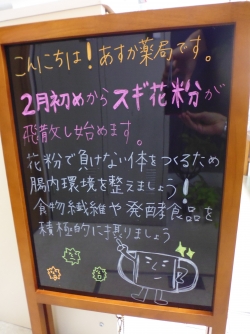 こんにちは!あすか薬局です。
2月初めからスギ花粉が
飛散し始めます。
花粉で負けない体をつくるため
腸内環境を整えましょう!
食物繊維や発酵食品を
積極的に摂りましょう